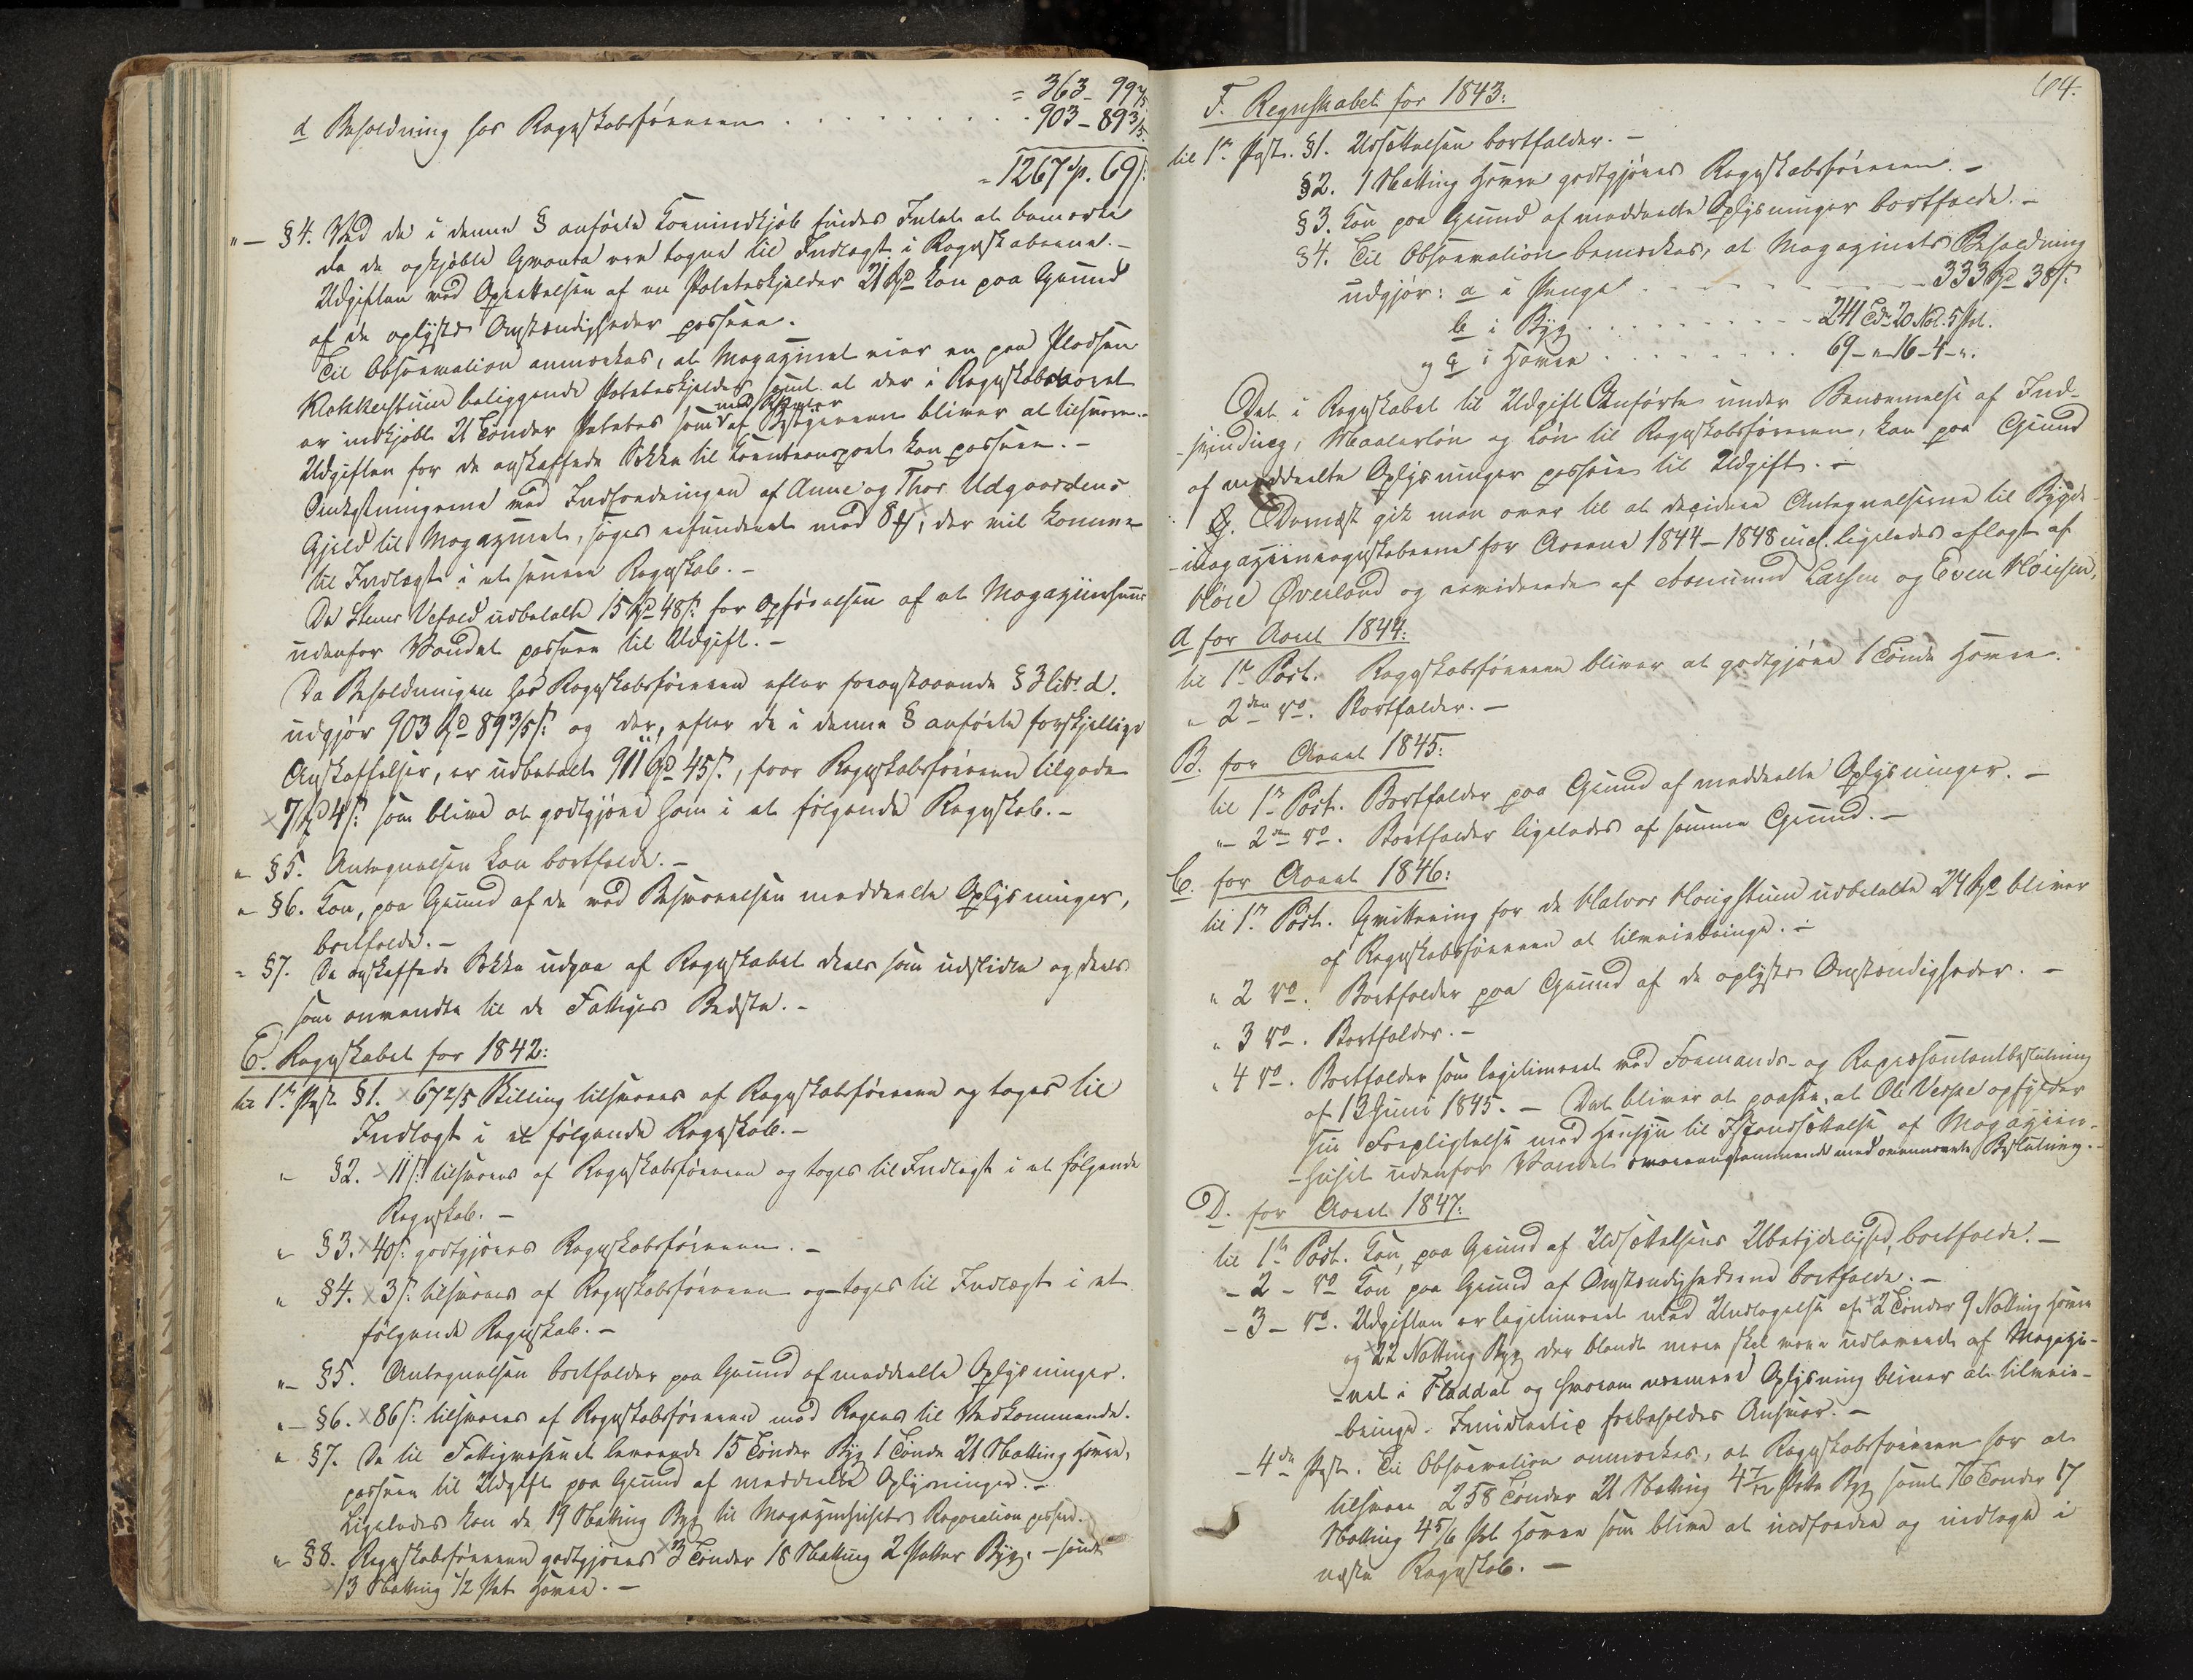 = 363 - 99 2/5
d Beholdning hos Regnskabsføreren . . . . . . . . . 903 - 89 3/5
= 1267 Sp. 69 s:
"— §4. Ved de i denne § anførte Kornindkjøb findes Intet at bemærke
da de opkjøbte Qvanta ere tagne til Indtægt i Regnskaberne. —
Udgiften ved Oprettelsen af en Poteteskjelder 21 Spd kan paa Grund
af de oplyste Omstændigheder passere.
Til Observation anmærkes, at Magazinet eier en paa Pladsen
Klokkerstuen beliggende Poteteskjelder samt at der i Regnskabsaaret
er indkjøbt 21 Tønder Poteter som af Bestyreren bliver at tilsvare. —
Udgiften for de anskaffede Sække til Korntransport kan passere. —
Omkostningerne ved Inddrivningen af Anne og Thor Udgaardens
Gjeld til Magazinet, søges refunderet med 84 s, der vil komme
til Indtægt i et senere Regnskab. —
De Stener Vefald udbetalte 15 Spd 48 s: for Opførelsen af et Magaziinhuus
udenfor Vandet passere til Udgift. —
Da Beholdningen hos Regnskabsføreren efter foranstaaende § 3 litr. d.
udgjør 903 Spd 89 3/5 s: og der, efter de i denne § anførte forskjellige
Anskaffelser, er udbetalt 911 Spd 45 s:, faar Regnskabsføreren tilgode
× 7 Spd 4 s: som blive at godtgjøre ham i et følgende Regnskab. —
" §5. Antegnelsen kan bortfalde. —
" §6. Kan, paa Grund af de ved Besvarelsen meddeelte Oplysninger,
bortfalde. —
" §7. De anskaffede Sække udgaa af Regnskabet deels som udslidte og deels
som anvendte til de Fattiges Bedste. —
E. Regnskabet for 1842:
til 1ste Post §1. × 67 2/5 Skilling tilsvares af Regnskabsføreren og tages til
Indtægt i et følgende Regnskab. —
" §2. × 11 s: tilsvares af Regnskabsføreren og tages til Indtægt i et følgende
Regnskab. —
" §3. × 40 s: godtgjøres Regnskabsføreren. —
" §4. × 3 s: tilsvares af Regnskabsføreren og tages til Indtægt i et
følgende Regnskab. —
"— §5. Antegnelsen bortfalder paa Grund af meddeelte Oplysninger.
"— §6. × 86 s: tilsvares af Regnskabsføreren med Regres til Vedkommende.
" §7. De til Fattigvæsenet leverede 15 Tønder Byg 1 Tønde 21 Skatting Havre,
passere til Udgift paa Grund af meddeelte Oplysninger. —
Ligeledes kan de 19 Skatting Byg til Magazinhusets Reparation passere.
" §8. Regnskabsføreren godtgjøres × 3 Tønder 18 Skatting 2 Potter Byg, — samt
× 13 Skatting 1/2 Pot Havre. —
104.
F. Regnskabet for 1843:
til 1ste Post. §1. Udsættelsen bortfalder. —
§2. 1 Skatting Havre godtgjøres Regnskabsføreren. —
§3. Kan paa Grund af meddeelte Oplysninger bortfalde. —
§4. Til Observation bemærkes, at Magazinets Beholdning
udgjør: a i Penge . . . . . . . 333 Spd 38 s:
b i Byg . . . . . . . . . 241 Tdr 20 Skt. 5 Pot.
og c i Havre . . . . . . . . 69 — " 16 — 4 — ".
Det i Regnskabet til Udgift Anførte under Benævnelse af Ind-
-drivning, Maalerløn og Løn til Regnskabsføreren, kan paa Grund
af meddeelte Oplysninger passere til Udgift. —
G. Dernæst gik man over til at decidere Antegnelserne til Bygde-
-magaziinregnskaberne for Aarene 1844 — 1848 incl. ligeledes aflagt af
Høie Øverland og reviderede af Aamund Larsen og Even Høiesen,
A for Aaret 1844:
til 1ste Post. Regnskabsføreren bliver at godtgjøre 1 Tønde Havre.
" 2den do. Bortfalder. —
B. for Aaret 1845:
til 1ste Post. Bortfalder paa Grund af meddeelte Oplysninger. —
"— 2den do. Bortfalder ligeledes af samme Grund. —
C. for Aaret 1846:
til 1ste Post. Qvittering for de Halvor Haugstuen udbetalte 24 Spd bliver
af Regnskabsføreren at tilveiebringe. —
" 2 do. Bortfalder paa Grund af de oplyste Omstændigheder. —
" 3 do. Bortfalder. —
" 4 do. Bortfalder som legitimeret ved Formands- og Repræsentantbeslutning
af 13 Juni 1845. — Det bliver at paasee, at Ole Verpe opfylder
sin Forpligtelse med Hensyn til Istandsættelse af Magaziin-
-huset udenfor Vandet overeensstemmende med ovennævnte Beslutning. —
D. for Aaret 1847:
til 1ste Post. Kan, paa Grund af Udsættelsens Ubetydelighed, bortfalde. —
— 2 — do Kan paa Grund af Omstændighederne bortfalde. —
— 3 — do. Udgiften er legitimeret med Undtagelse af × 2 Tønder 9 Skatting Havre
og × 22 Skatting Byg der blandt mere skal være udleveret af Magazi-
-net i Fladdal og hvorom nærmere Oplysning bliver at tilveie-
-bringe. Imidlertid forbeholdes Ansvar. —
— 4de Post. Til Observation anmærkes, at Regnskabsføreren har at
tilsvare 258 Tønder 21 Skatting 4 7/12 Potte Byg samt 76 Tønder 17
Skatting 4 5/6 Pot Havre som blive at indfordre og indtage i
næste Regnskab. —